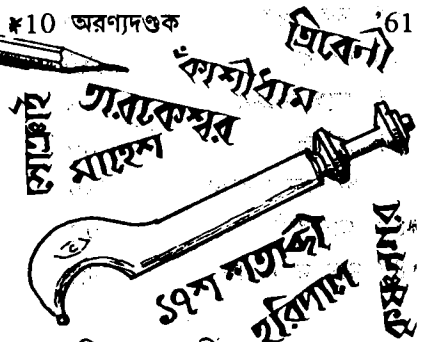 *10 অরণ্যদণ্ডক '61
ত্রিবেণী
কাঁশীধাম
তারাকেশ্বর
মাহেশ
১৭শ শতাব্দী
হরিপাল
কৃষ্ণনগর